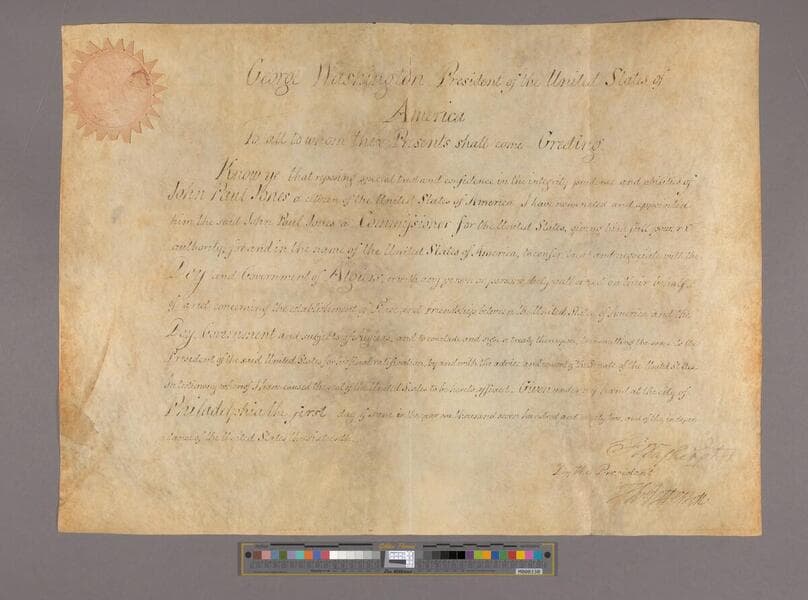 George Washington President of the United States of
America
To all to whom these Presents shall come Greeting
Know ye that reposing special trust and confidence in the integrity prudence and abilities of
John Paul Jones a citizen of the United States of America I have nominated and appointed
him the said John Paul Jones a Commissioner for the United States, giving him full power &
authority, for and in the name of the United States of America, to confer treat and negociate with the
Dey and Government of Algiers, or with any person or persons duly authorized on their behalf
of and concerning the establishment of Peace and Friendship between the United States of America and the
Dey, Government and subjects of Algiers, and to conclude and sign a treaty thereupon, transmitting the same to the
President of the said United States for his final ratification, by and with the advice and consent of the Senate of the United States.
In testimony whereof I have caused the seal of the United States to be hereto affixed. Given under my hand at the city of
Philadelphia the first day of June in the year one thousand seven hundred and ninety two, and of the indepen
dence of the United States the sixteenth.
G Washington
By the President
Th Jefferson